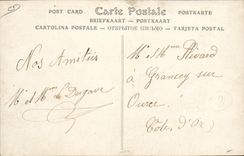 POST CARD Carte Postale POSTKARTE
BRIEFKAART — POSTKAART
CARTOLINA POSTALE — ОТКРЫТОЕ ПИСЬМО — TARJETA POSTAL
Nos Amitiés
M et Mme
M et Mme
à Grancey sur
Ource
Côte d'Or